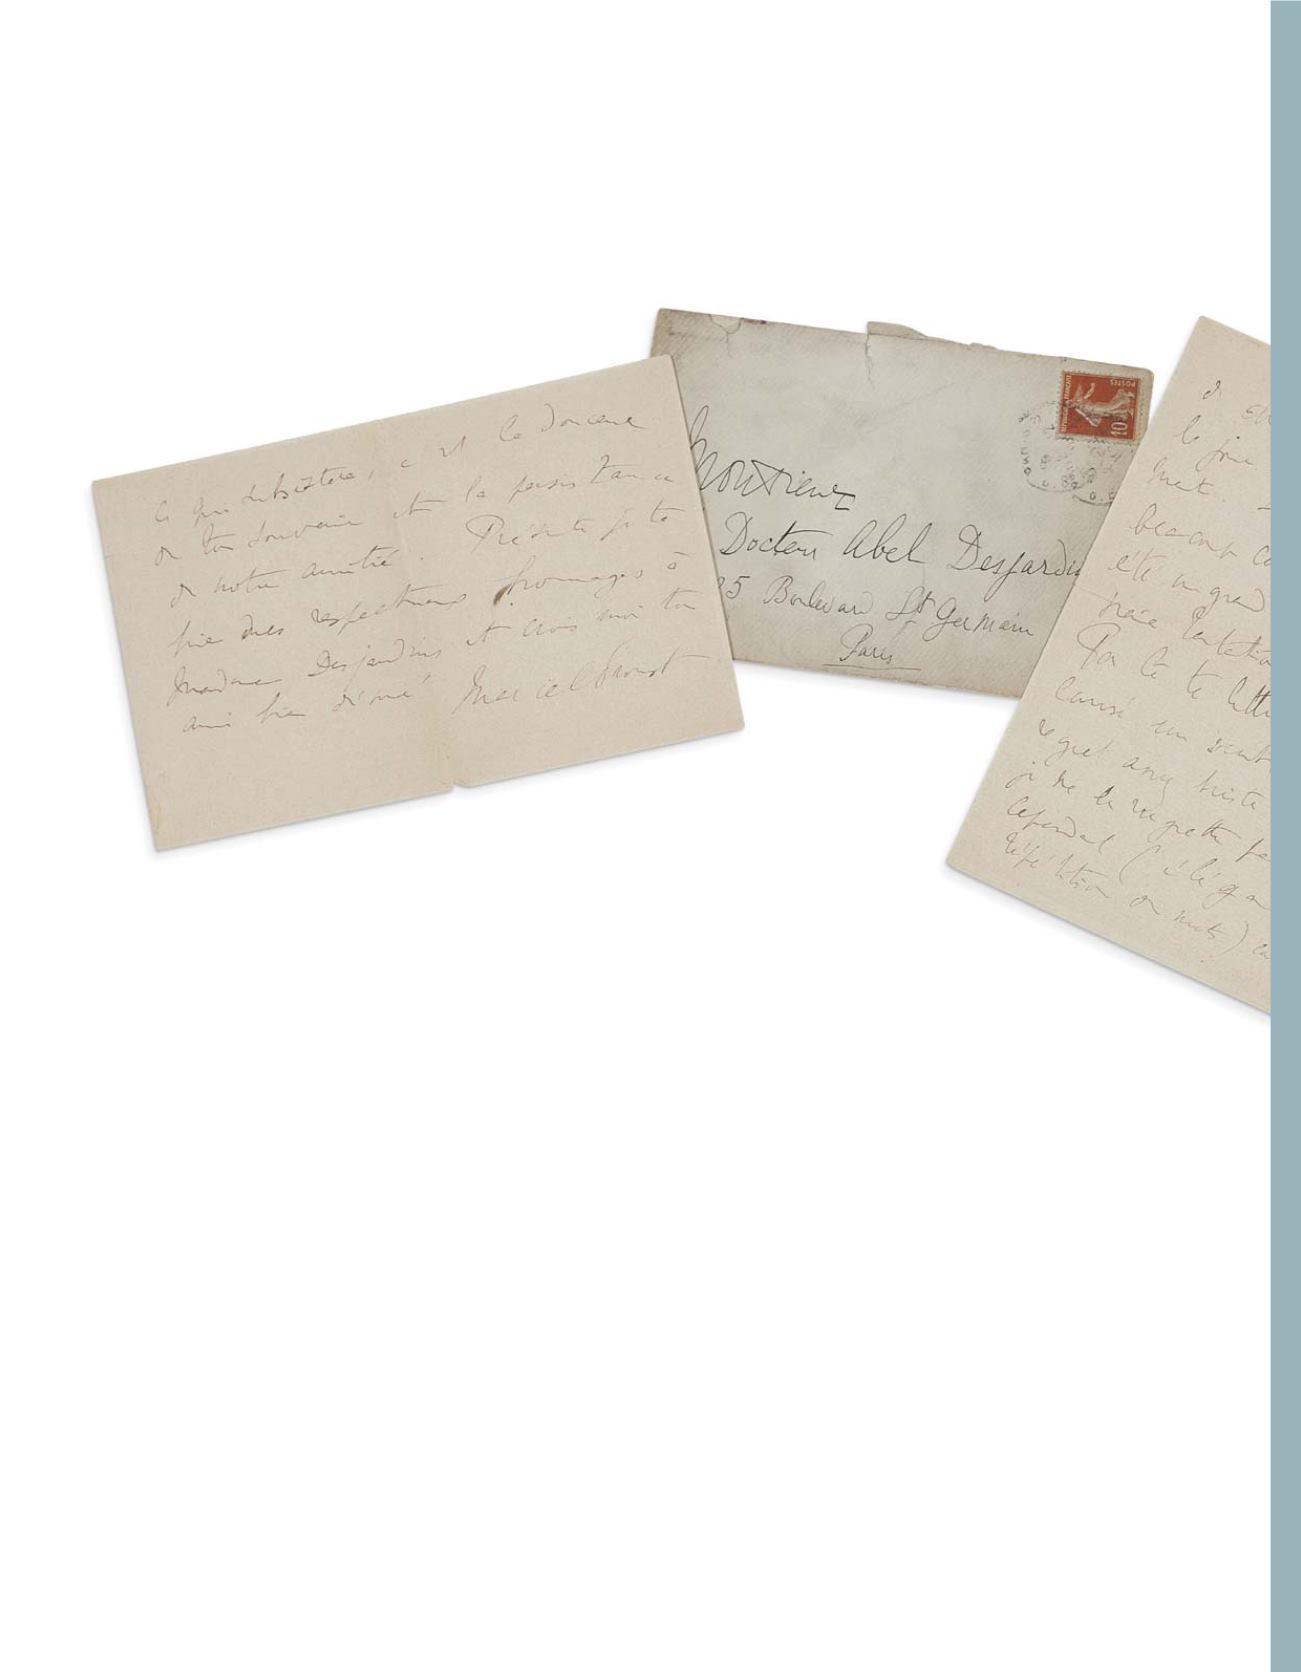 ce qui subsistera, c'est la douceur
de ton souvenir et la persistance
de notre amitié. Présente je te
prie mes respectueux hommages à
Madame Desjardins et crois moi ton
ami bien dévoué Marcel Proust
Monsieur
Docteur Abel Desjardins
25 Boulevard St Germain
Paris
POSTES
10
la joie
beaucoup
été un grand
vraie tentation
Ta lettre
causé un
regret assez triste
je ne la regrette
cependant (élégan
répétition de mots)